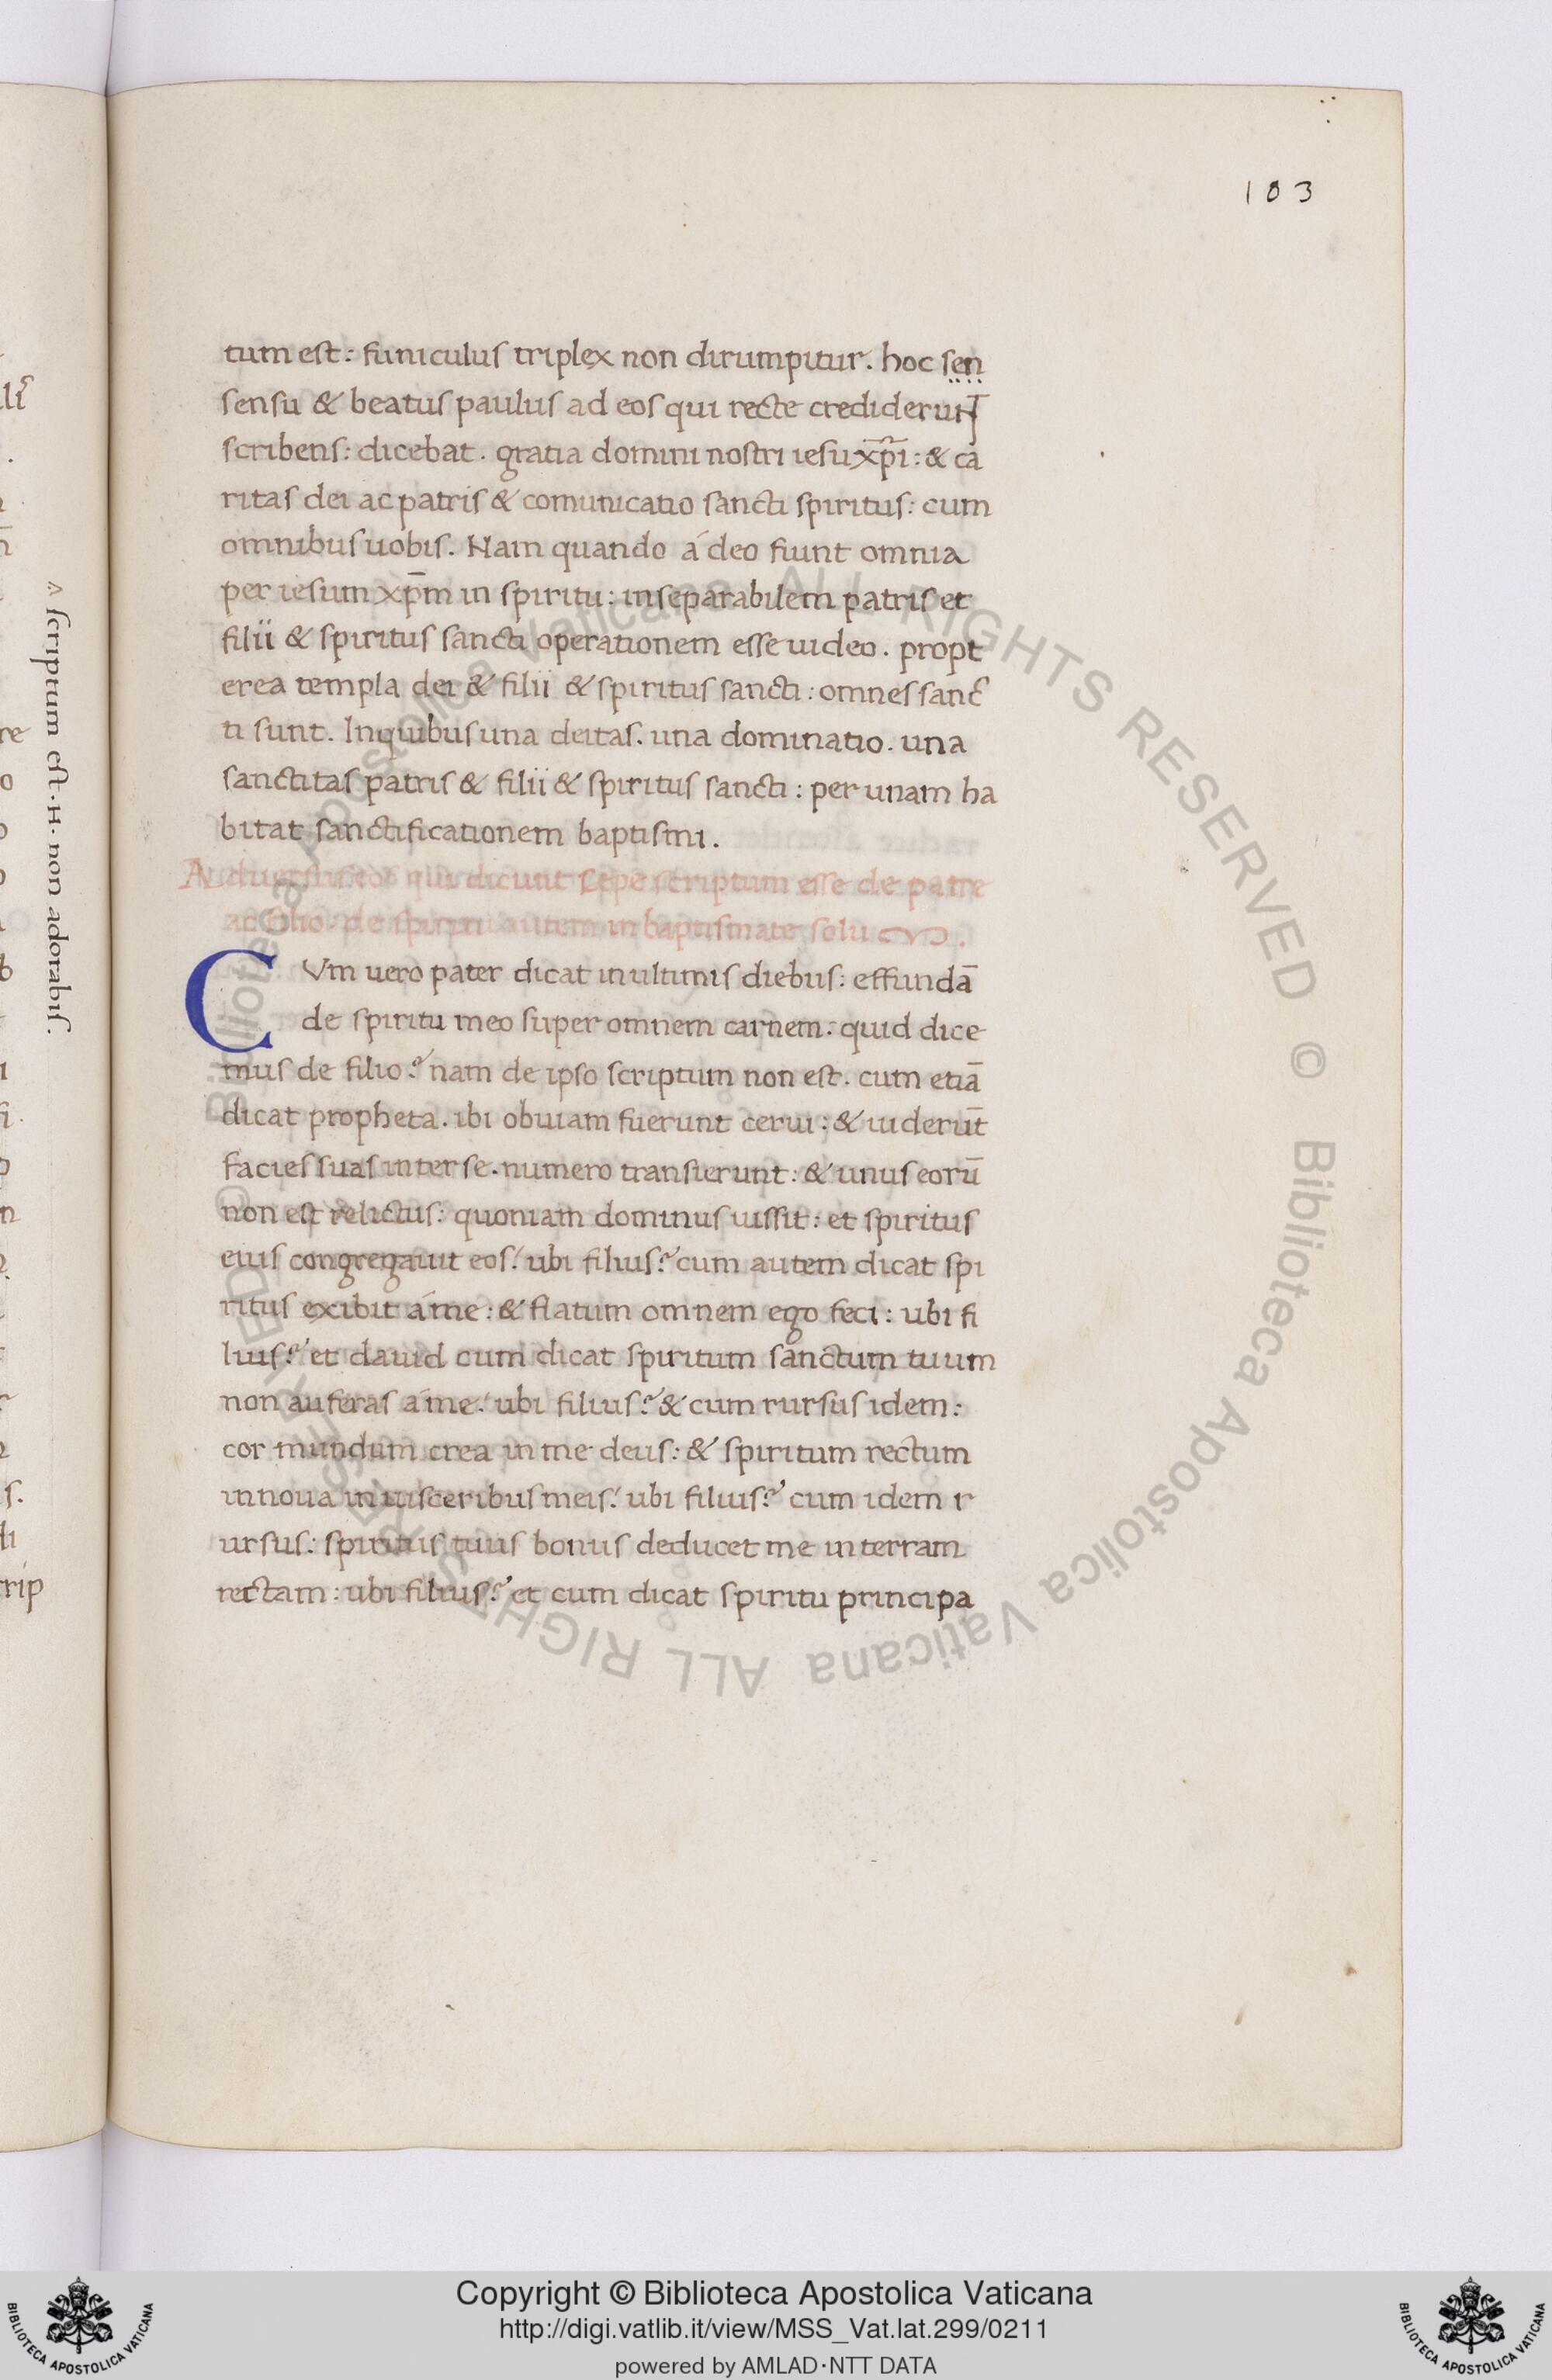 103
tum est: funiculus triplex non dirumpitur. hoc sen
sensu & beatus paulus ad eos qui recte crediderunt
scribens: dicebat. gratia domini nostri iesu xp̄i: & ca
ritas dei ac patris & comunicatio sancti spiritus: cum
omnibus uobis. Nam quando á deo fiunt omnia
per iesum xp̄m in spiritu: inseparabilem patris et
filii & spiritus sancti operationem esse uideo. propt
erea templa dei & filii & spiritus sancti: omnes sanc
ti sunt. In quibus una deitas. una dominatio. una
sanctitas patris & filii & spiritus sancti: per unam ha
bitat sanctificationem baptismi.
Aduersus eos qui dicunt sepe scriptum esse de patre
ac filio. de spiritu autem in baptismate solu
CVm uero pater dicat in ultimis diebus: effundā
de spiritu meo super omnem carnem: quid dice
mus de filio? nam de ipso scriptum non est. cum etiā
dicat propheta. ibi obuiam fuerunt cerui: & uiderūt
facies suas inter se. numero transierunt: & unus eorū
non est relictus: quoniam dominus iussit: et spiritus
eius congregauit eos! ubi filius? cum autem dicat spi
ritus exibit á me: & flatum omnem ego feci: ubi fi
lius? et dauid cum dicat spiritum sanctum tuum
non auferas á me! ubi filius? & cum rursus idem:
cor mundum crea in me deus: & spiritum rectum
innoua in uisceribus meis! ubi filius? cum idem r
ursus: spiritus tuus bonus deducet me in terram
rectam: ubi filius? et cum dicat spiritu principa
scriptum est. N. non adorabis.
© Biblioteca Apostolica Vaticana ALL RIGHTS RESERVED © Biblioteca Apostolica Vaticana ALL RIGHTS RESERVED
Copyright © Biblioteca Apostolica Vaticana
http://digi.vatlib.it/view/MSS_Vat.lat.299/0211
powered by AMLAD·NTT DATA
BIBLIOTECA APOSTOLICA VATICANA
BIBLIOTECA APOSTOLICA VATICANA